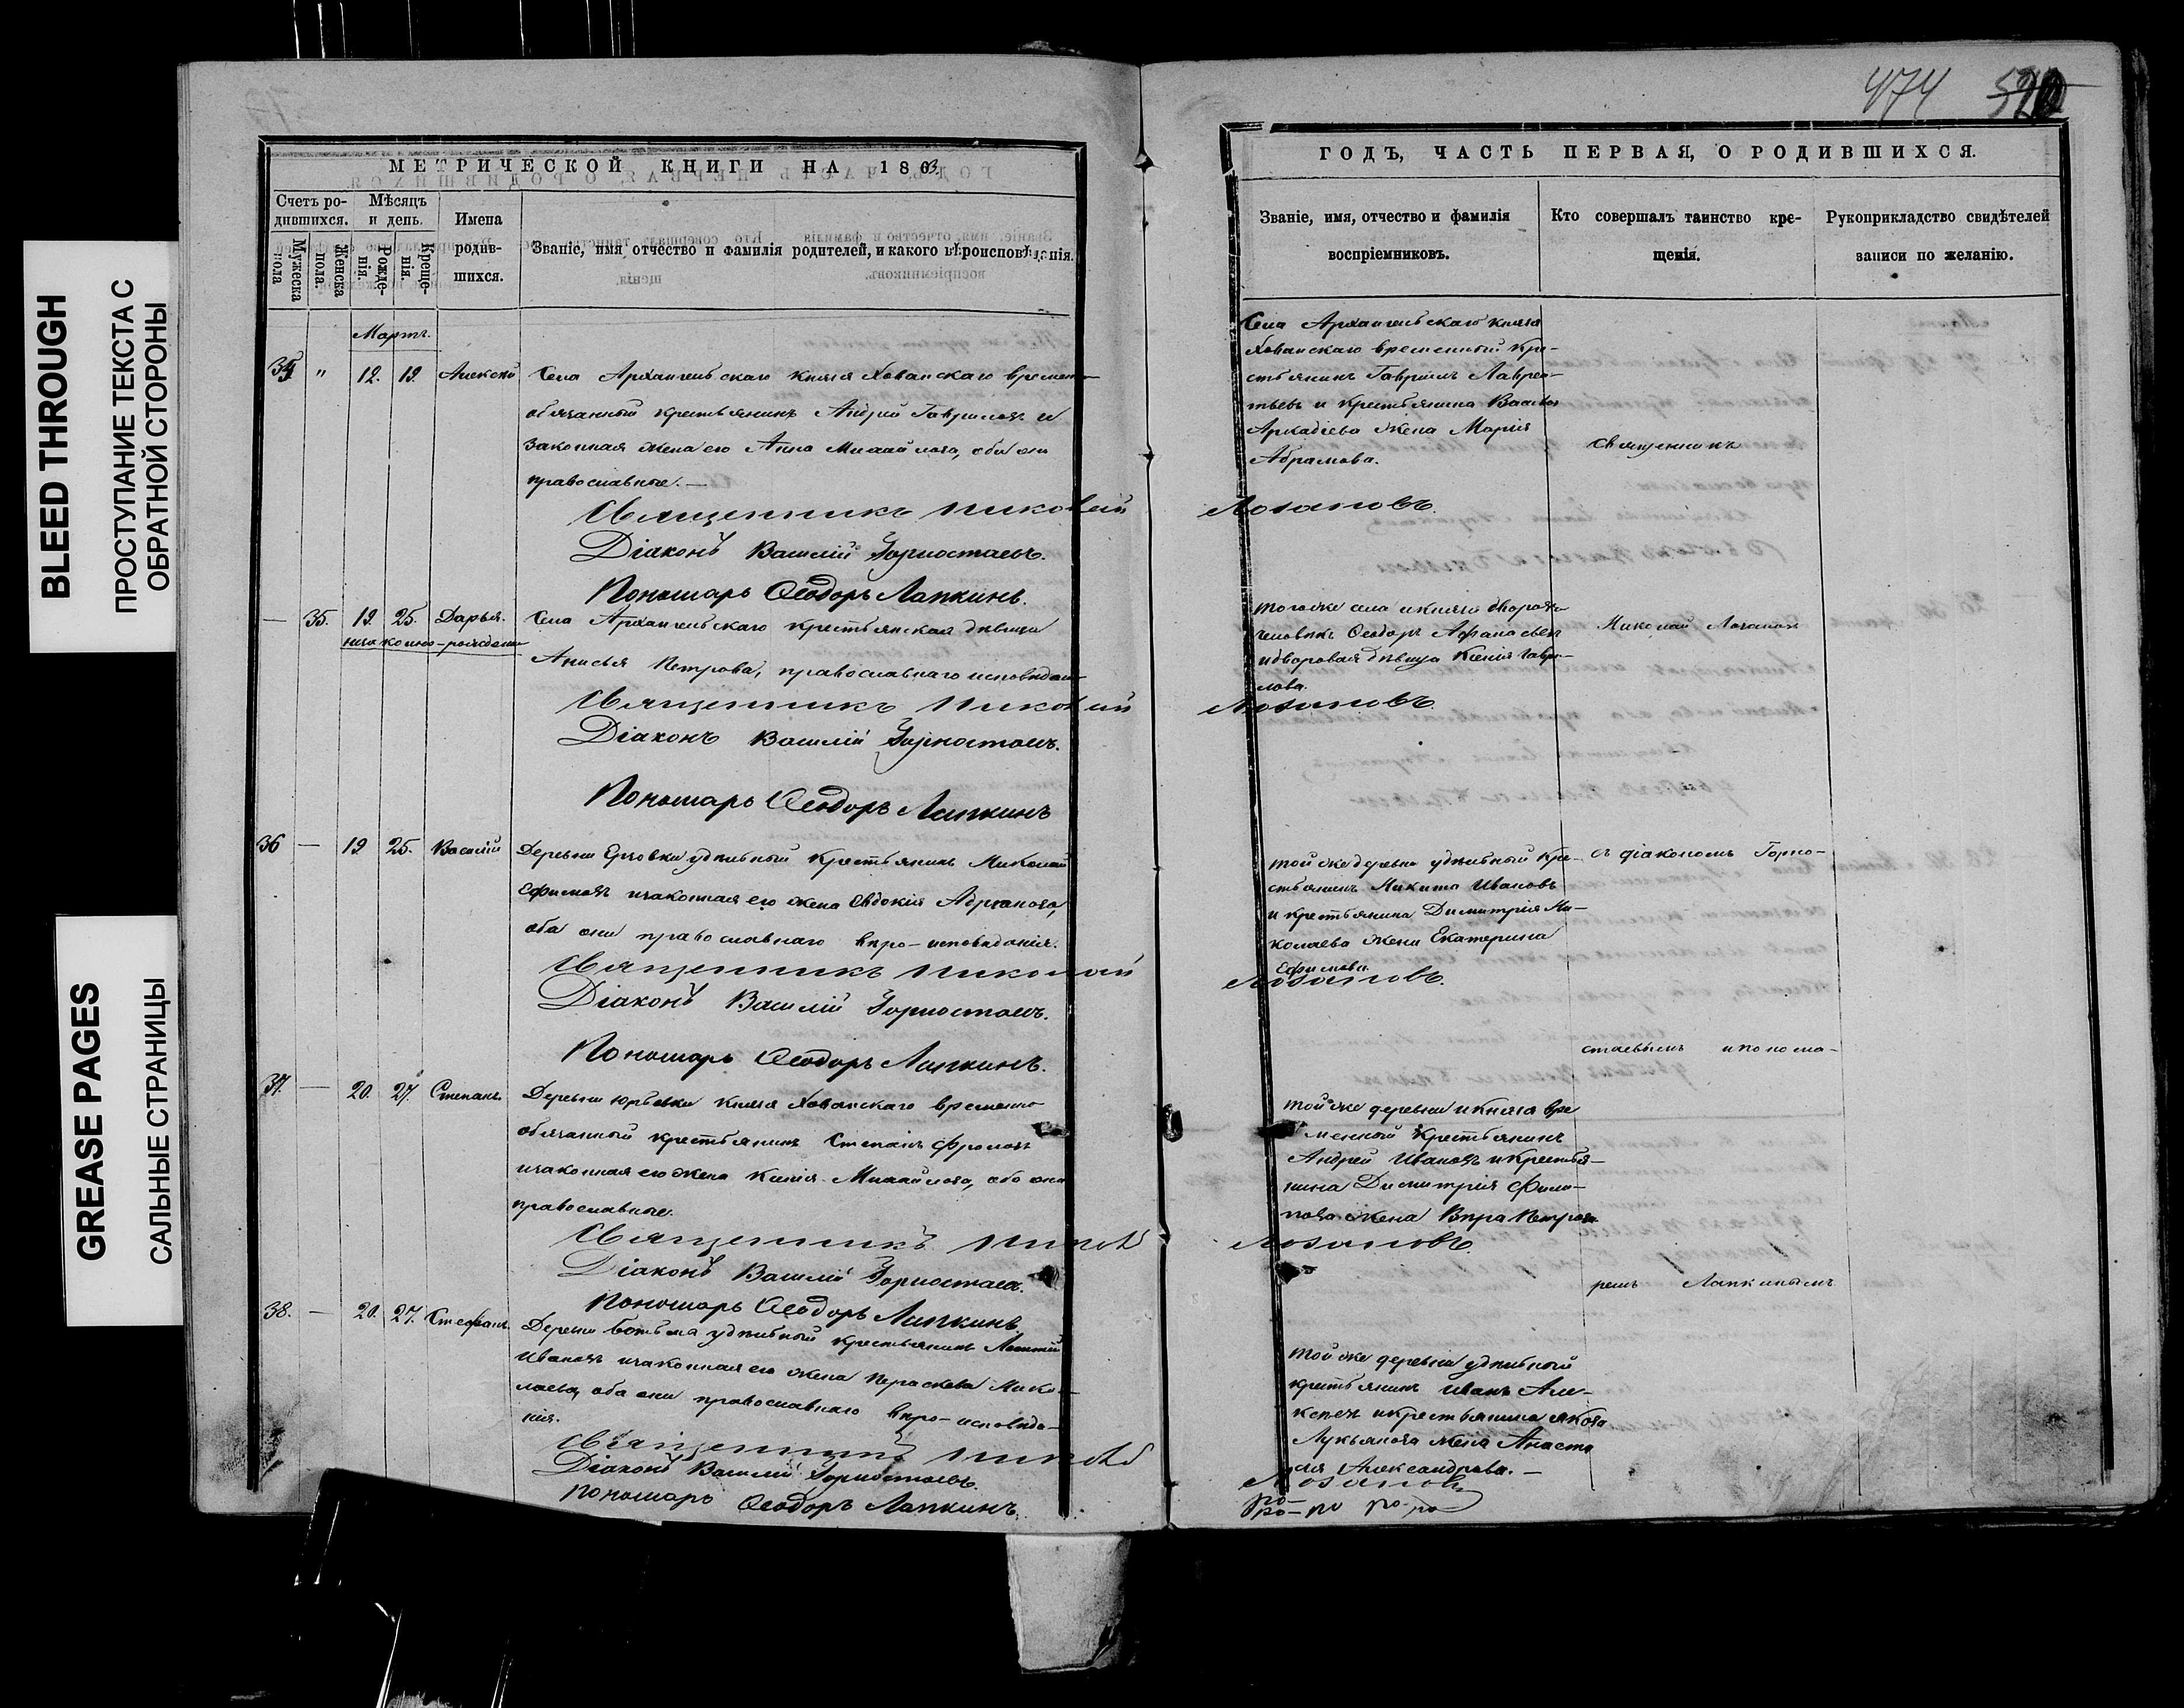 BLEED THROUGH
ПРОСТУПАНИЕ ТЕКСТА С
ОБРАТНОЙ СТОРОНЫ
GREASE PAGES
САЛЬНЫЕ СТРАНИЦЫ
МЕТРИЧЕСКОЙ КНИГИ НА 1863
Счетъ ро-
дившихся.
Мѣсяцъ
и день.
Имена
родив-
шихся.
Мужеска
пола
Женска
пола.
Рожде-
нія.
Креще-
нія.
Званіе, имя, отчество и фамилія родителей, и какого вѣроисповѣданія.
Мартъ.
34 " 12. 19. Алексѣй Села Архангельскаго князя Хованскаго временно
обязанный крестьянинъ Андрей Гавриловъ и
законная жена его Анна Михайлова, оба они
православные. —
Священникъ Николай Лозановъ.
Діаконъ Василій Горностаевъ.
Пономарь Ѳеодоръ Лапкинъ.
— 35. 19. 25. Дарья. Села Архангельскаго крестьянская дѣвица
незаконно-рожденн
Анисья Петрова, православнаго исповѣдан
Священникъ Николай Лозановъ.
Діаконъ Василій Горностаевъ.
Пономарь Ѳеодоръ Лапкинъ
36 — 19 25. Василій Деревни удѣльный крестьянинъ Николай
Ефимовъ и законная его жена Евдокія
оба они православнаго вѣро-исповѣданія.
Священникъ Николай Лозановъ.
Діаконъ Василій Горностаевъ.
Пономарь Ѳеодоръ Лапкинъ.
37. — 20. 27. Степанъ. Деревни Юрьевки князя Хованскаго временно
обязанный крестьянинъ Степанъ Фроловъ
и законная его жена Ксенія Михайлова, оба они
православные.
Священникъ Никол Лозановъ.
Діаконъ Василій Горностаевъ.
Пономарь Ѳеодоръ Лапкинъ
38. — 20. 27. Стефанъ. Деревни Ботьма удѣльный крестьянинъ
Ивановъ и законная его жена Параскева Нико-
лаева, оба они православнаго вѣро-исповѣда-
нія.
Священникъ Никол Лозановъ
Діаконъ Василій Горностаевъ.
Пономарь Ѳеодоръ Лапкинъ.
474 520
ГОДЪ, ЧАСТЬ ПЕРВАЯ, О РОДИВШИХСЯ.
Званіе, имя, отчество и фамилія
воспріемниковъ.
Кто совершалъ таинство кре-
щенія.
Рукоприкладство свидѣтелей
записи по желанію.
Села Архангельскаго князя
Хованскаго временный кре-
стьянинъ Гаврилъ Лаврен-
тьевъ и крестьянина Василья
Аркадіева жена Марія
Абрамова.
Священникъ
того же села и князя дворов.
человѣкъ Ѳеодоръ Афанасьевъ
и дворовая дѣвица Ксенія Гаври-
лова.
Николай Лозановъ
той же деревни удѣльный кре-
стьянинъ Никита Ивановъ
и крестьянина Димитрія Ни-
колаева жена Екатерина
Ефимова.
съ діакономъ Горно-
стаевымъ и понома-
той же деревни и князя вре
менный крестьянинъ
Андрей Ивановъ и крестья-
нина Димитрія Фили-
пова жена Вѣра Петрова
ремъ Лапкинымъ
той же деревни удѣльный
крестьянинъ Иванъ Але-
ксѣевъ и крестьянина Якова
Лукьянова жена Анаста
сія Александрова. —